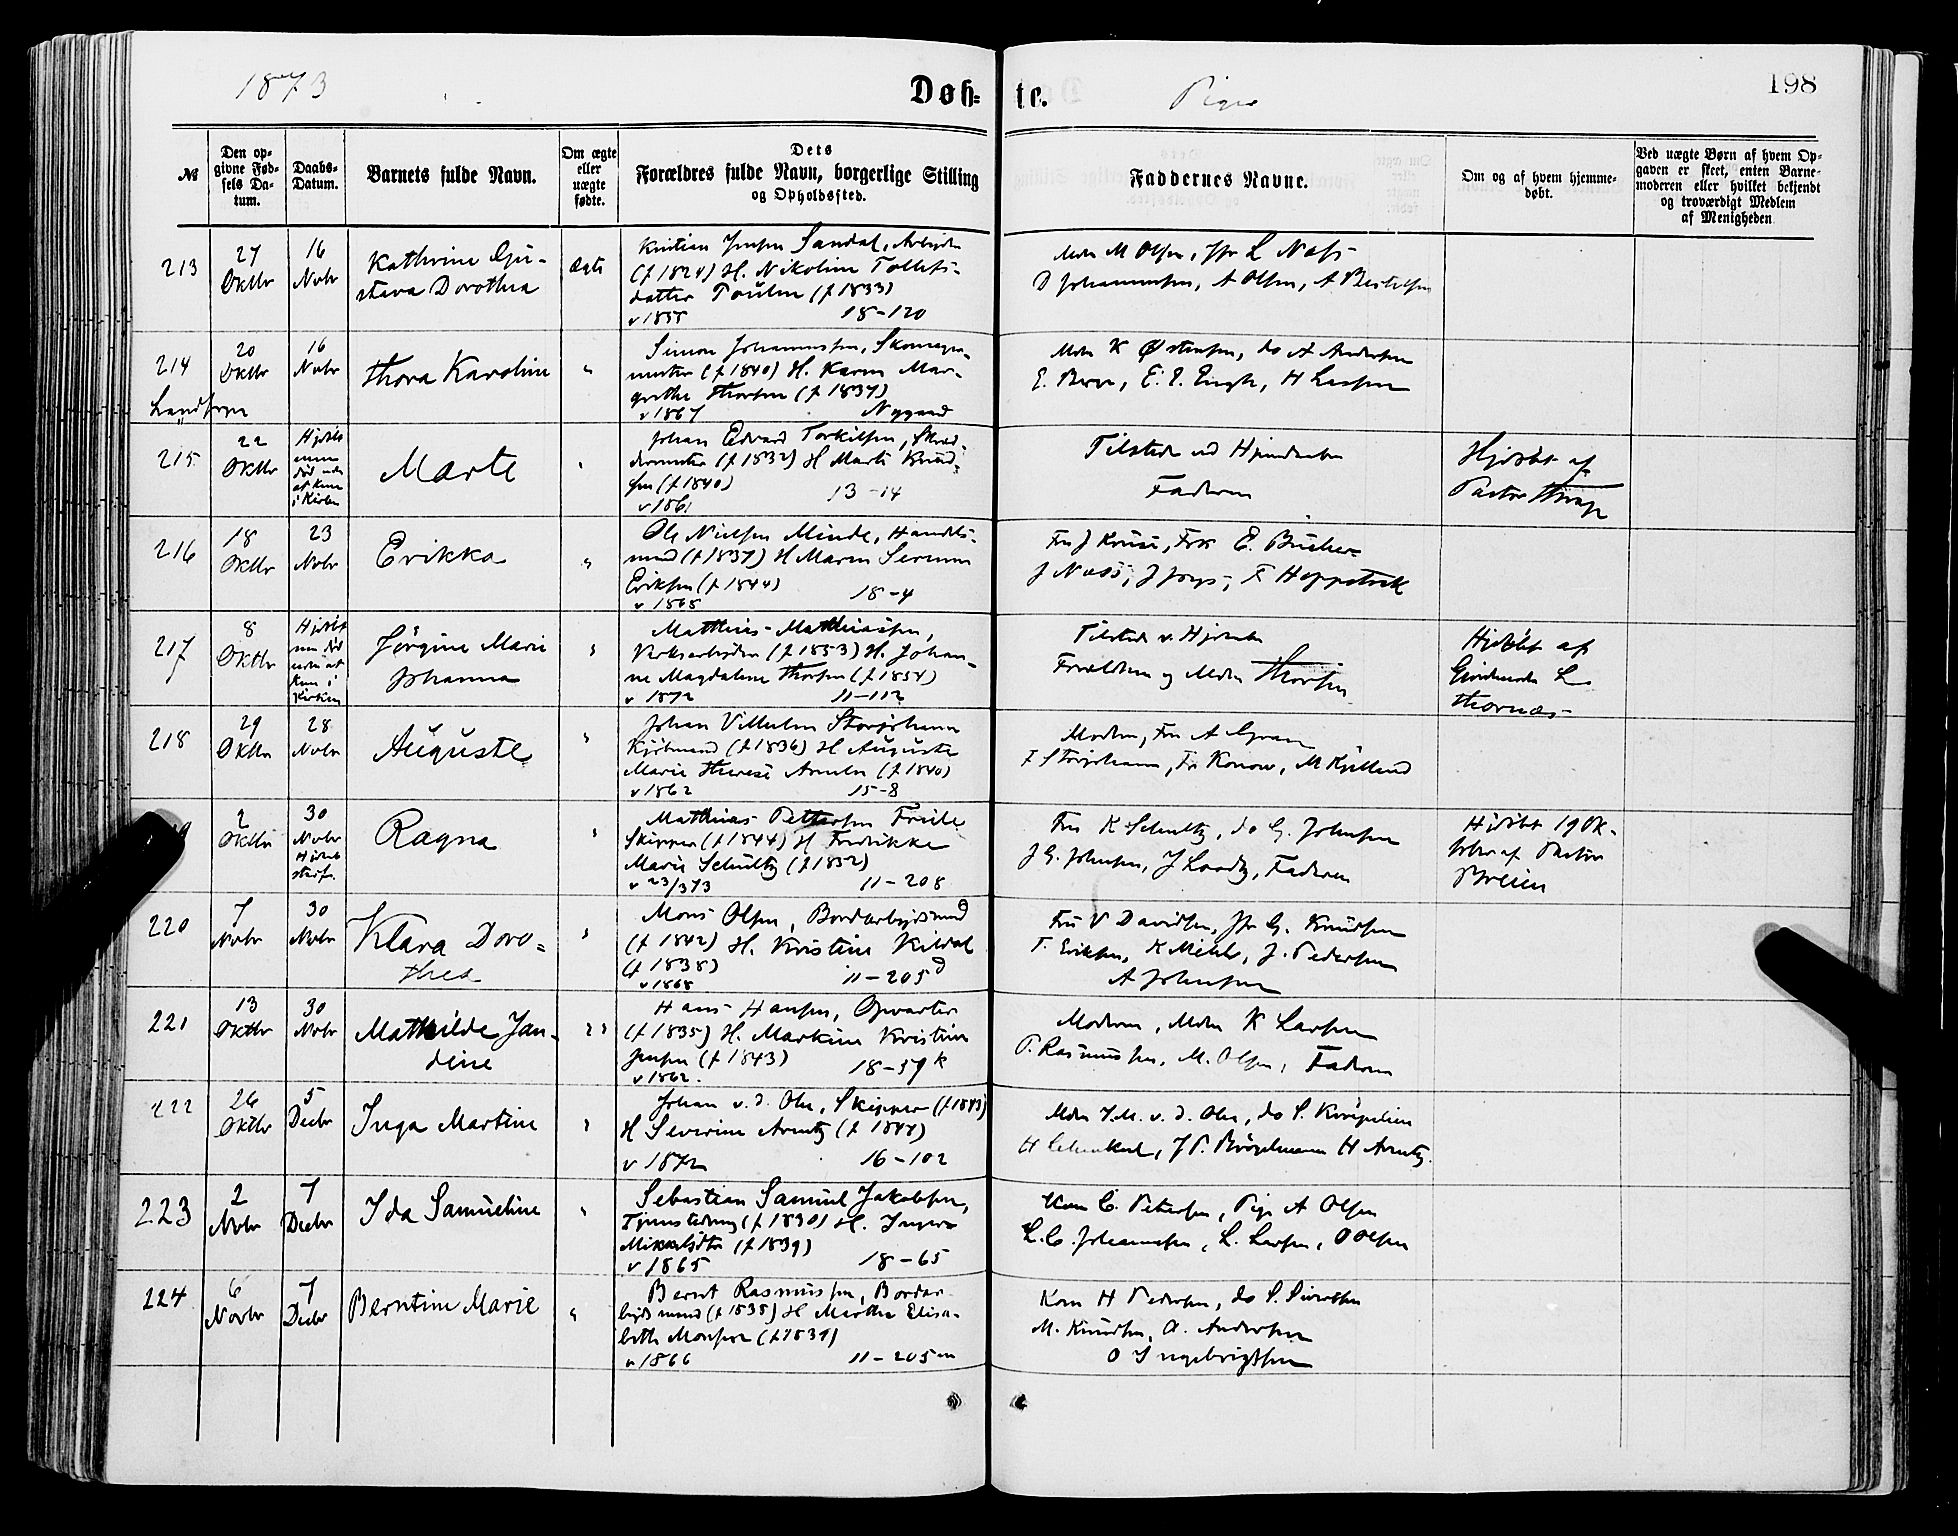 1873
Døb-
te.
198
№
Den op-
givne Fød-
sels Da-
tum.
Daabs-
Datum.
Barnets fulde Navn.
Om ægte
eller
uægte
fødte.
Dets
Forældres fulde Navn, borgerlige Stilling
og Opholdssted.
Faddernes Navne.
Om og af hvem hjemme-
døbt.
Ved uægte Børn af hvem Op-
gaven er skeet, enten Barne-
moderen eller hvilket bekjendt
og troværdigt Medlem
af Menigheden
213
27
Oktbr
16
Novbr
Kathrine Gju-
stava Dorothea
Ægte
Kristian Jensen Sandal, Arbejder
(f 1824) H. Nikoline Tollefs-
datter Poulsen (f 1833)
v 1855 18-120
Mdm M Olsen, Jfr L Næss
D Johannesen, A Olsen, A
214
20
Oktbr
16
Novbr
Thora Karoline
"
Simon Johannesen, Skomager-
mester (f 1840) H. Karen Mar-
grethe Thorsen (f 1837)
v 1867 Nygaard
Mdm K Østensen, do A Andersen
E. E. E. Engh, H Larsen
215
22
Oktbr
Hjdøbt
men
død uden
at kom
i Kirken
Marte
Johan Edvard Torkilsen, Skræd-
dermester (f 1832) H Marti Knud-
sen (f 1840) 13-14
v 1861
Tilstede ved Hjemdaaben
Faderen
Hjdøbt af
Pastor
216
18
Oktbr
23
Novbr
Erikka
"
Ole Nielsen Minde, Handels-
mand (f 1837) H Maren Serene
Eriksen (f 1844) 18-4
v 1868
Fru J Kruse, Frk E. Bücher
J Næss, J
217
8
Oktbr
Hjdøbt
men død
uden at
kom i
Kirken
Jörgine Marie
Johanna
Matthias Mathiasen,
Verksarbejder (f 1853) H. Johan-
ne Magdalene Thorsen (f 1854)
v 1872 11-112
Tilstede v. Hjdaab
Forældrene og Mdm Thorsen
Hjdöbt af
L
Thornæs
218
29
Oktbr
28
Novbr
Auguste
Johan Vilhelm Storjohann
Kjöbmand (f 1836) H Auguste
Marie Therese (f 1840)
v 1862 15-8
Moderen, Fru A Gran
F Storjohann, Fr Konow, M Kjelland
2
Oktbr
30
Novbr
Hjdøbt
Ragna
Matthias Pettersen Friele
Skipper (f 1844) H Fredrikke
Marie Schultz (f 1852)
v 23/3 73 11-208
Fru K Schultz, do G. Johnsen
J G. Johnsen, J Loodtz, Faderen
Hjdöbt 19 Ok-
tober af Pastor
Breien
220
7
Novbr
30
Novbr
Klara Doro-
thea
Mons Olsen, Bordarbejdsmd
(f 1842) H. Kristine Kildal
(f 1838)
v 1868 11-205 d
Fru V Davidsen, Jfr G. Knudsen
T. Eriksen, K Mehl, J. Pedersen
A Johnsen
221
13
Oktbr
30
Novbr
Mathilde Jan-
dine
"
Hans Hansen, Opvarter
(f 1835) H. Martine Kristine
Jensen (f 1843) 18-59 k
v 1862.
Moderen, Mdm K Larsen
P. Rasmussen, M. Olsen, Faderen
222
26
Oktbr
5
Decbr
Inga Martine
Johan v. d. Ohe, Skipper (f 1843)
H Severine Arentz (f 1844)
v 1872 16-102
Mdm J. M. v. d. Ohe, do S.
H J P. H Arentz.
223
2
Novbr
7
Decbr
Ida Samueline
"
Sebastian Samuel Jakobsen,
(f 1830) H. Inger
Mikkelsdtr (f 1839)
v 1865 18-65
Kone C. Petersen, Pige A Olsen
L. C. Johannesen, L. Larsen, O Olsen
224
6
Novbr
7
Decbr
Berntine Marie
"
Bernt Rasmussen, Bordar-
bejdsmand (f 1835) H Martha Elisa-
beth Monsen (f 1837)
v 1866 11-205 m
Kone H Pedersen, do S. Sivertsen
M. Knudsen, A. Andersen
O Ingebrigtsen